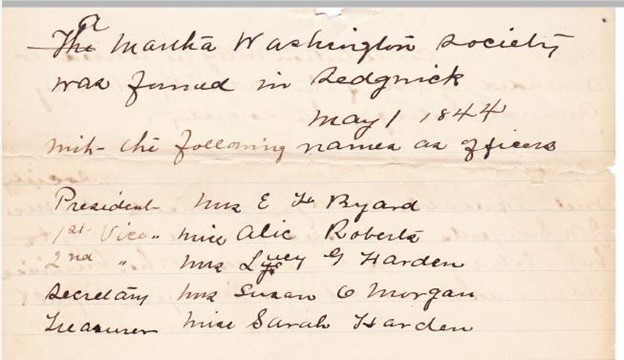 A
The Martha Washington Society
was formed in Sedgwick
May 1 1844
with the following names as officers
President Mrs E H Byard
1st Vice " Miss Alic Roberts
2nd " Mrs Lucy G Harden
Secretary Mrs Susan O Morgan
Treasurer Miss Sarah Harden